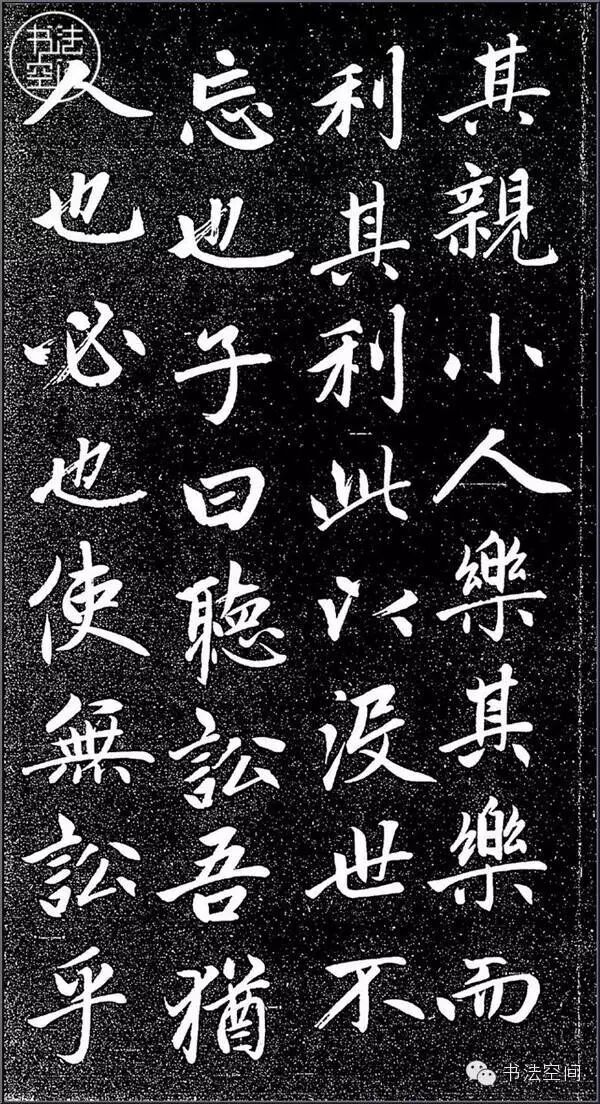 其親小人樂其樂而
利其利此以没世不
忘也子曰聽訟吾猶
人也必也使無訟乎
书法空间
书法空间